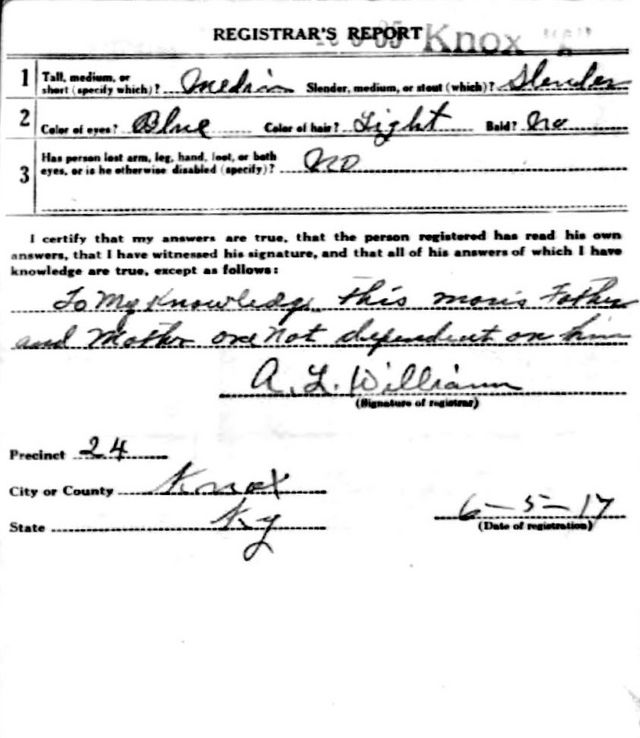 REGISTRAR'S REPORT
Knox
1 Tall, medium, or short (specify which)? Medium Slender, medium, or stout (which)? Slender
2 Color of eyes? Blue Color of hair? Light Bald? No
3 Has person lost arm, leg, hand, foot, or both
eyes, or is he otherwise disabled (specify)? No
I certify that my answers are true, that the person registered has read his own
answers, that I have witnessed his signature, and that all of his answers of which I have
knowledge are true, except as follows:
To My Knowledge this man's Father
and Mother are Not dependent on him
A. L. William
(Signature of registrar)
Precinct 24
City or County Knox
State Ky
6-5-17
(Date of registration)